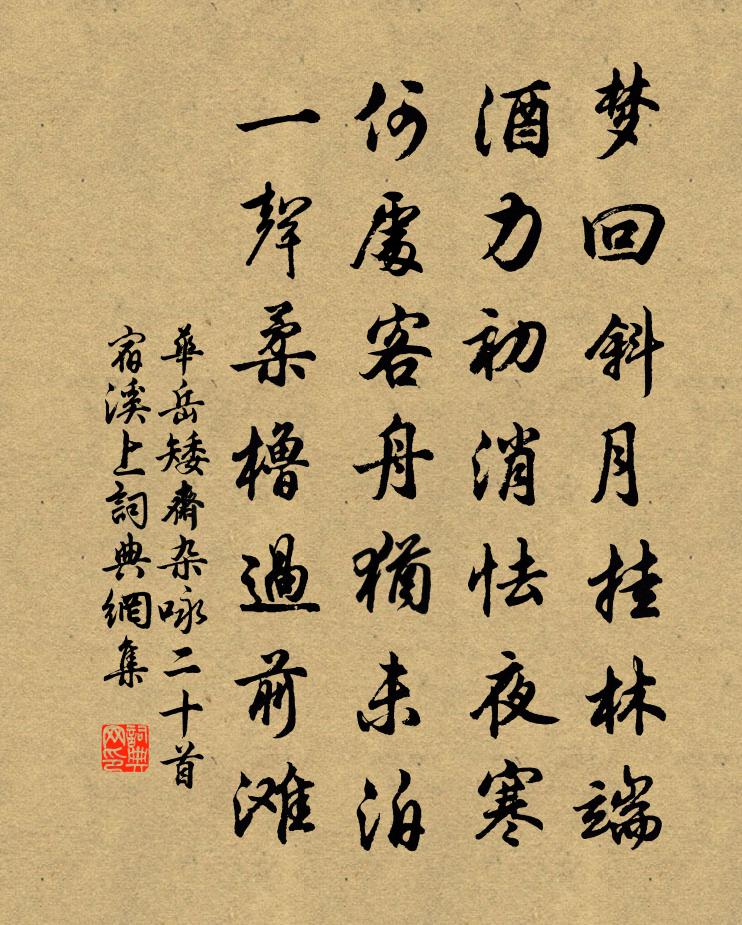 梦回斜月挂林端
酒力初消怯夜寒
何處客舟猶未泊
一聲柔櫓過前滩
華岳矮齋杂咏二十首
宿溪上詞典網集
詞典
网印